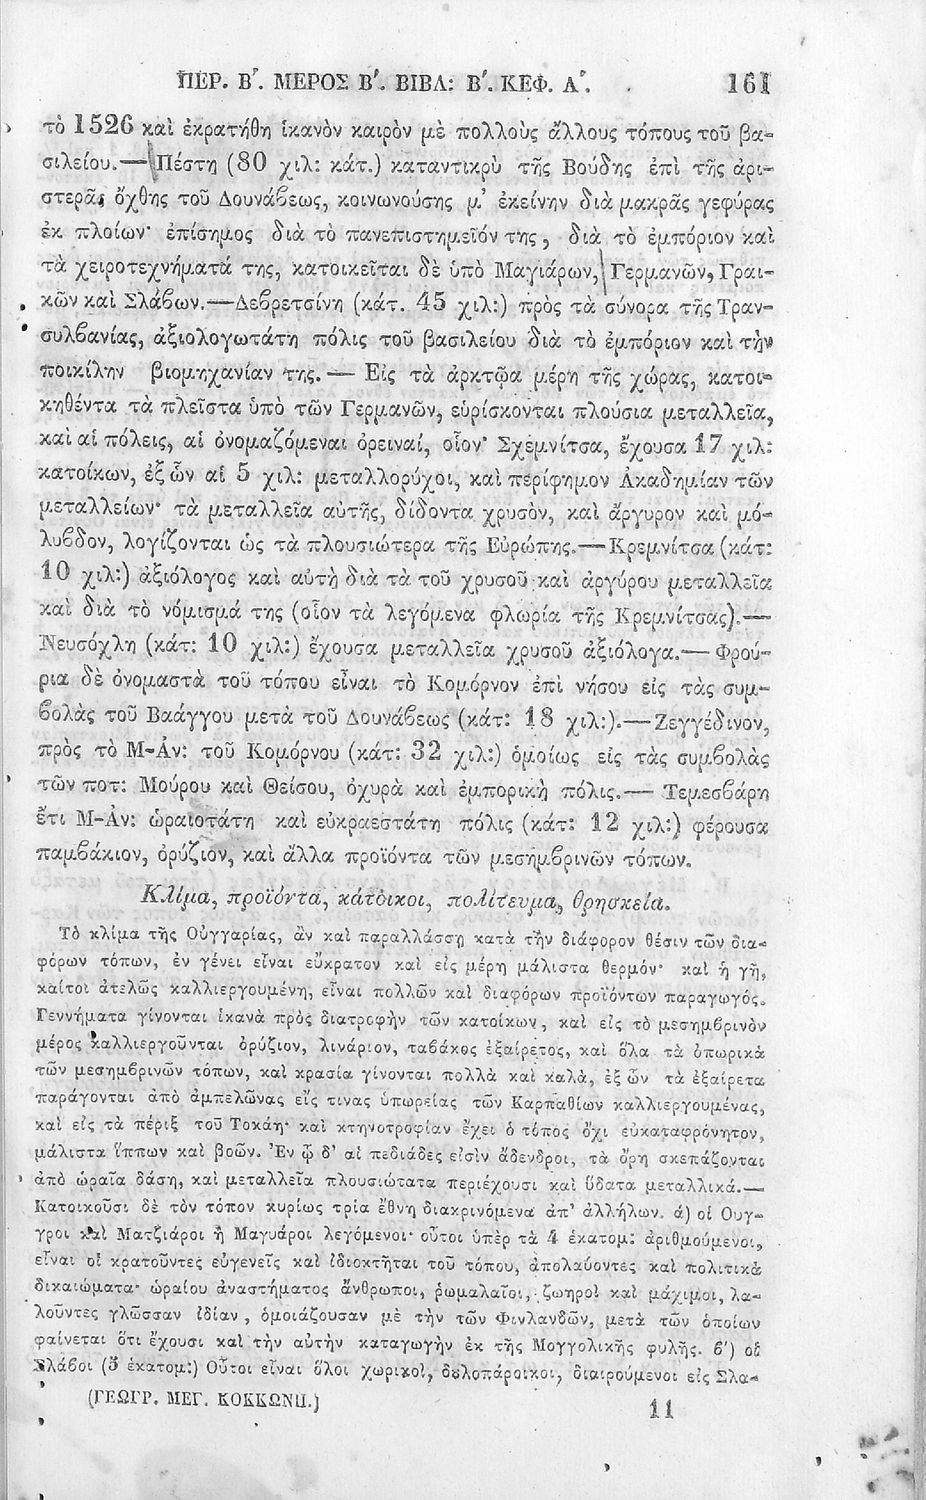 ΠΕΡ. Β'. ΜΕΡΟΣ Β'. ΒΙΒΛ: Β'. ΚΕΦ. Α'. 161
τὸ 1526 καὶ ἐκρατήθη ἱκανὸν καιρὸν μὲ πολλοὺς ἄλλους τόπους τοῦ βα-
σιλείου.—Πέστη (80 χιλ: κάτ.) καταντικρὺ τῆς Βούδης ἐπὶ τῆς ἀρι-
στερᾶς ὄχθης τοῦ Δουνάβεως, κοινωνούσης μ' ἐκείνην διὰ μακρᾶς γεφύρας
ἐκ πλοίων· ἐπίσημος διὰ τὸ πανεπιστημεῖόν της, διὰ τὸ ἐμπόριον καὶ
τὰ χειροτεχνήματά της, κατοικεῖται δὲ ὑπὸ Μαγιάρων, Γερμανῶν, Γραι-
κῶν καὶ Σλάβων.—Δεβρετσίνη (κάτ. 45 χιλ:) πρὸς τὰ σύνορα τῆς Τραν-
συλβανίας, ἀξιολογωτάτη πόλις τοῦ βασιλείου διὰ τὸ ἐμπόριον καὶ τὴν
ποικίλην βιομηχανίαν της.— Εἰς τὰ ἀρκτῷα μέρη τῆς χώρας, κατοι-
κηθέντα τὰ πλεῖστα ὑπὸ τῶν Γερμανῶν, εὑρίσκονται πλούσια μεταλλεῖα,
καὶ αἱ πόλεις, αἱ ὀνομαζόμεναι ὀρειναί, οἷον· Σχεμνίτσα, ἔχουσα 17 χιλ:
κατοίκων, ἐξ ὧν αἱ 5 χιλ: μεταλλορύχοι, καὶ περίφημον Ἀκαδημίαν τῶν
μεταλλείων· τὰ μεταλλεῖα αὐτῆς, δίδοντα χρυσὸν, καὶ ἄργυρον καὶ μό-
λυβδον, λογίζονται ὡς τὰ πλουσιώτερα τῆς Εὐρώπης.—Κρεμνίτσα (κάτ:
10 χιλ:) ἀξιόλογος καὶ αὐτὴ διὰ τὰ τοῦ χρυσοῦ καὶ ἀργύρου μεταλλεῖα
καὶ διὰ τὸ νόμισμά της (οἷον τὰ λεγόμενα φλωρία τῆς Κρεμνίτσας).—
Νευσόχλη (κάτ: 10 χιλ:) ἔχουσα μεταλλεῖα χρυσοῦ ἀξιόλογα.— Φρού-
ρια δὲ ὀνομαστὰ τοῦ τόπου εἶναι τὸ Κομόρνον ἐπὶ νήσου εἰς τὰς συμ-
βολὰς τοῦ Βαάγγου μετὰ τοῦ Δουνάβεως (κάτ: 18 χιλ:).—Ζεγγέδινον,
πρὸς τὸ Μ-Ἀν: τοῦ Κομόρνου (κάτ: 32 χιλ:) ὁμοίως εἰς τὰς συμβολὰς
τῶν ποτ: Μούρου καὶ Θείσου, ὀχυρὰ καὶ ἐμπορικὴ πόλις.— Τεμεσβάρη
ἔτι Μ-Ἀν: ὡραιοτάτη καὶ εὐκραεστάτη πόλις (κάτ: 12 χιλ:) φέρουσα
παμβάκιον, ὀρύζιον, καὶ ἄλλα προϊόντα τῶν μεσημβρινῶν τόπων.
Κλίμα, προϊόντα, κάτοικοι, πολίτευμα, θρησκεία.
Τὸ κλίμα τῆς Οὑγγαρίας, ἂν καὶ παραλλάσσῃ κατὰ τὴν διάφορον θέσιν τῶν δια-
φόρων τόπων, ἐν γένει εἶναι εὔκρατον καὶ εἰς μέρη μάλιστα θερμόν· καὶ ἡ γῆ,
καίτοι ἀτελῶς καλλιεργουμένη, εἶναι πολλῶν καὶ διαφόρων προϊόντων παραγωγός.
Γεννήματα γίνονται ἱκανὰ πρὸς διατροφὴν τῶν κατοίκων, καὶ εἰς τὸ μεσημβρινὸν
μέρος καλλιεργοῦνται ὀρύζιον, λινάριον, ταβάκος ἐξαίρετος, καὶ ὅλα τὰ ὀπωρικὰ
τῶν μεσημβρινῶν τόπων, καὶ κρασία γίνονται πολλὰ καὶ καλὰ, ἐξ ὧν τὰ ἐξαίρετα
παράγονται ἀπὸ ἀμπελῶνας εἴς τινας ὑπωρείας τῶν Καρπαθίων καλλιεργουμένας,
καὶ εἰς τὰ πέριξ τοῦ Τοκάη· καὶ κτηνοτροφίαν ἔχει ὁ τόπος ὄχι εὐκαταφρόνητον,
μάλιστα ἵππων καὶ βοῶν. Ἐν ᾧ δ' αἱ πεδιάδες εἰσὶν ἄδενδροι, τὰ ὄρη σκεπάζονται
ἀπὸ ὡραῖα δάση, καὶ μεταλλεῖα πλουσιώτατα περιέχουσι καὶ ὕδατα μεταλλικά.—
Κατοικοῦσι δὲ τὸν τόπον κυρίως τρία ἔθνη διακρινόμενα ἀπ' ἀλλήλων. ά) οἱ Οὑγ-
γροι καὶ Ματζιάροι ἢ Μαγυάροι λεγόμενοι· οὗτοι ὑπὲρ τὰ 4 ἑκατομ: ἀριθμούμενοι,
εἶναι οἱ κρατοῦντες εὐγενεῖς καὶ ἰδιοκτῆται τοῦ τόπου, ἀπολαύοντες καὶ πολιτικὰ
δικαιώματα· ὡραίου ἀναστήματος ἄνθρωποι, ῥωμαλαῖοι, ζωηροὶ καὶ μάχιμοι, λα-
λοῦντες γλῶσσαν ἰδίαν, ὁμοιάζουσαν μὲ τὴν τῶν Φινλανδῶν, μετὰ τῶν ὁποίων
φαίνεται ὅτι ἔχουσι καὶ τὴν αὐτὴν καταγωγὴν ἐκ τῆς Μογγολικῆς φυλῆς. β') οἱ
Σλάβοι (5 ἑκατομ:) Οὗτοι εἶναι ὅλοι χωρικοὶ, δουλοπάροικοι, διαιρούμενοι εἰς Σλα-
(ΓΕΩΓΡ. ΜΕΓ. ΚΟΚΚΩΝΗ.) 11